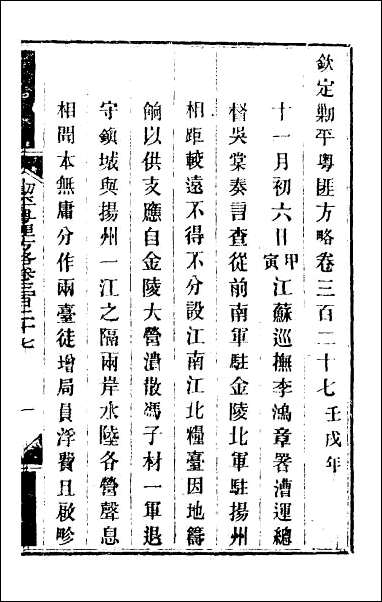 欽定剿平粤匪方略卷三百二十七 壬戌年
十一月初六日甲寅江蘇巡撫李鴻章署漕運總
督吳棠奏言查從前南軍駐金陵北軍駐揚州
相距較遠不得不分設江南江北糧臺因地籌
餉以供支應自金陵大營潰散馮子材一軍退
守鎮城與揚州一江之隔兩岸水陸各營聲息
相聞本無庸分作兩臺徒增局員浮費且啟畛
剿平粤匪方略卷三百二十七
一